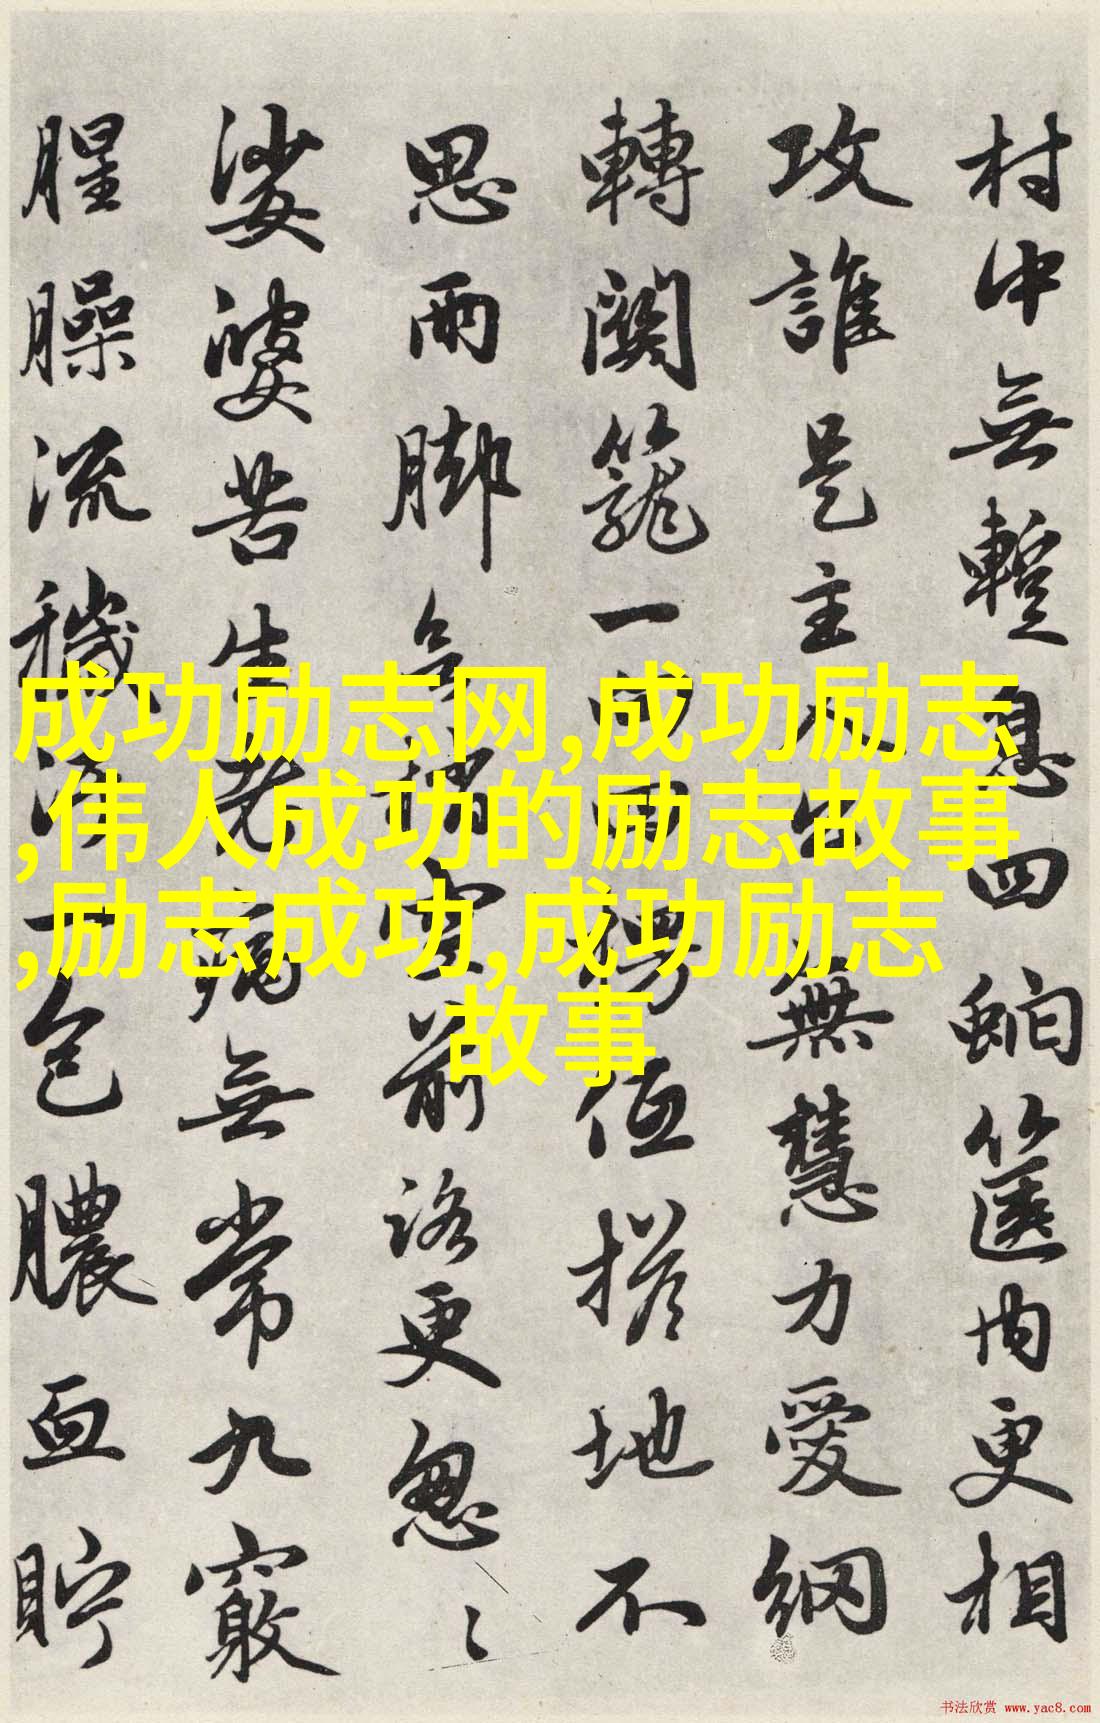 村中無暫息四虵篋内更相
攻誰是主人公無慧力愛網
轉關籠一回地不
思雨脚前路更忽〻
娑婆苦生老病無常九竅
腥臊流穢汙一包膿血貯
成功励志网,成功励志
,伟人成功的励志故事
,励志成功,成功励志
故事
书法欣赏 www.yac8.com